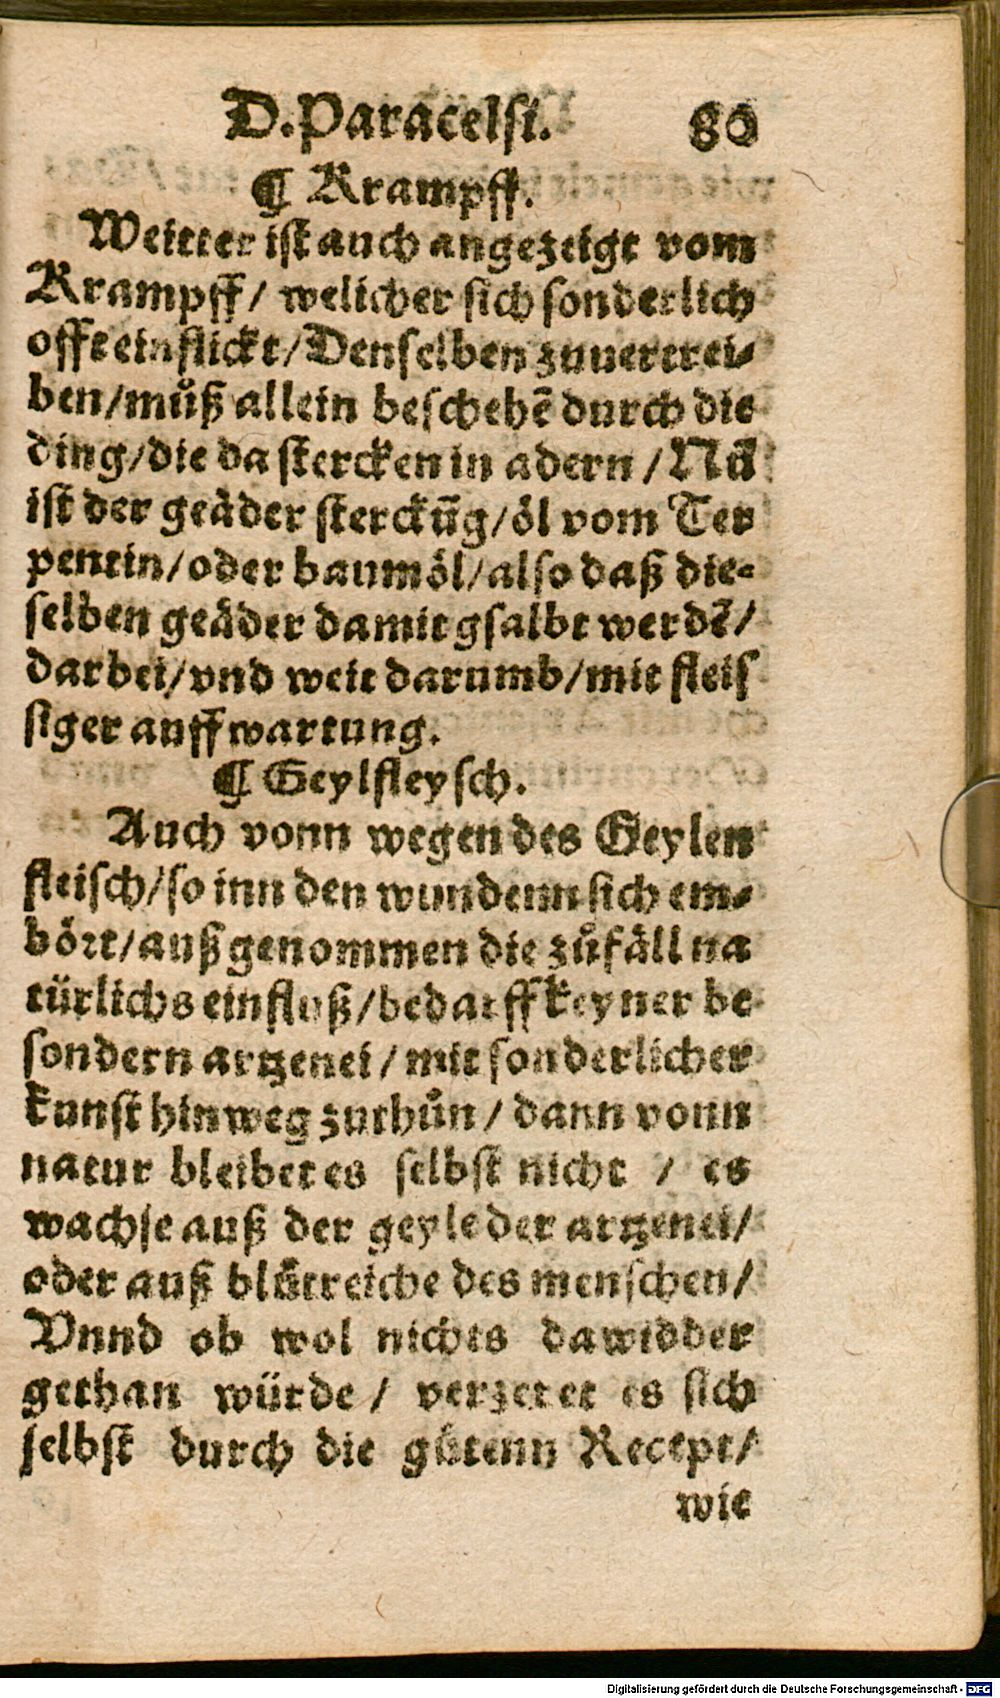 D. Paracelsi. 80
¶ Krampff.
Weitter ist auch angezeigt vom
Krampff / welicher sich sonderlich
offt einflickt / Denselben zuuertrei-
ben / můß allein beschehẽ durch die
ding / die da stercken in adern / Nů
ist der geäder sterckũg / öl vom Ter
pentin / oder baumöl / also daß die-
selben geäder damit gsalbt werdẽ /
darbei / vnd weit darumb / mit fleis
siger auff wartung.
¶ Geylfleysch.
Auch vonn wegen des Geylen
fleisch / so inn den wundenn sich em-
bört / außgenommen die zůfäll na
türlichs einfluß / bedarff keyner be
sondern artzenei / mit sonderlicher
kunst hinweg zuthůn / dann vonn
natur bleibet es selbst nicht / es
wachse auß der geyle der artzenei /
oder auß blůtreiche des menschen /
Vnnd ob wol nichts dawidder
gethan würde / verzeret es sich
selbst durch die gůtenn Recept /
wie
Digitalisierung gefördert durch die Deutsche Forschungsgemeinschaft - DFG